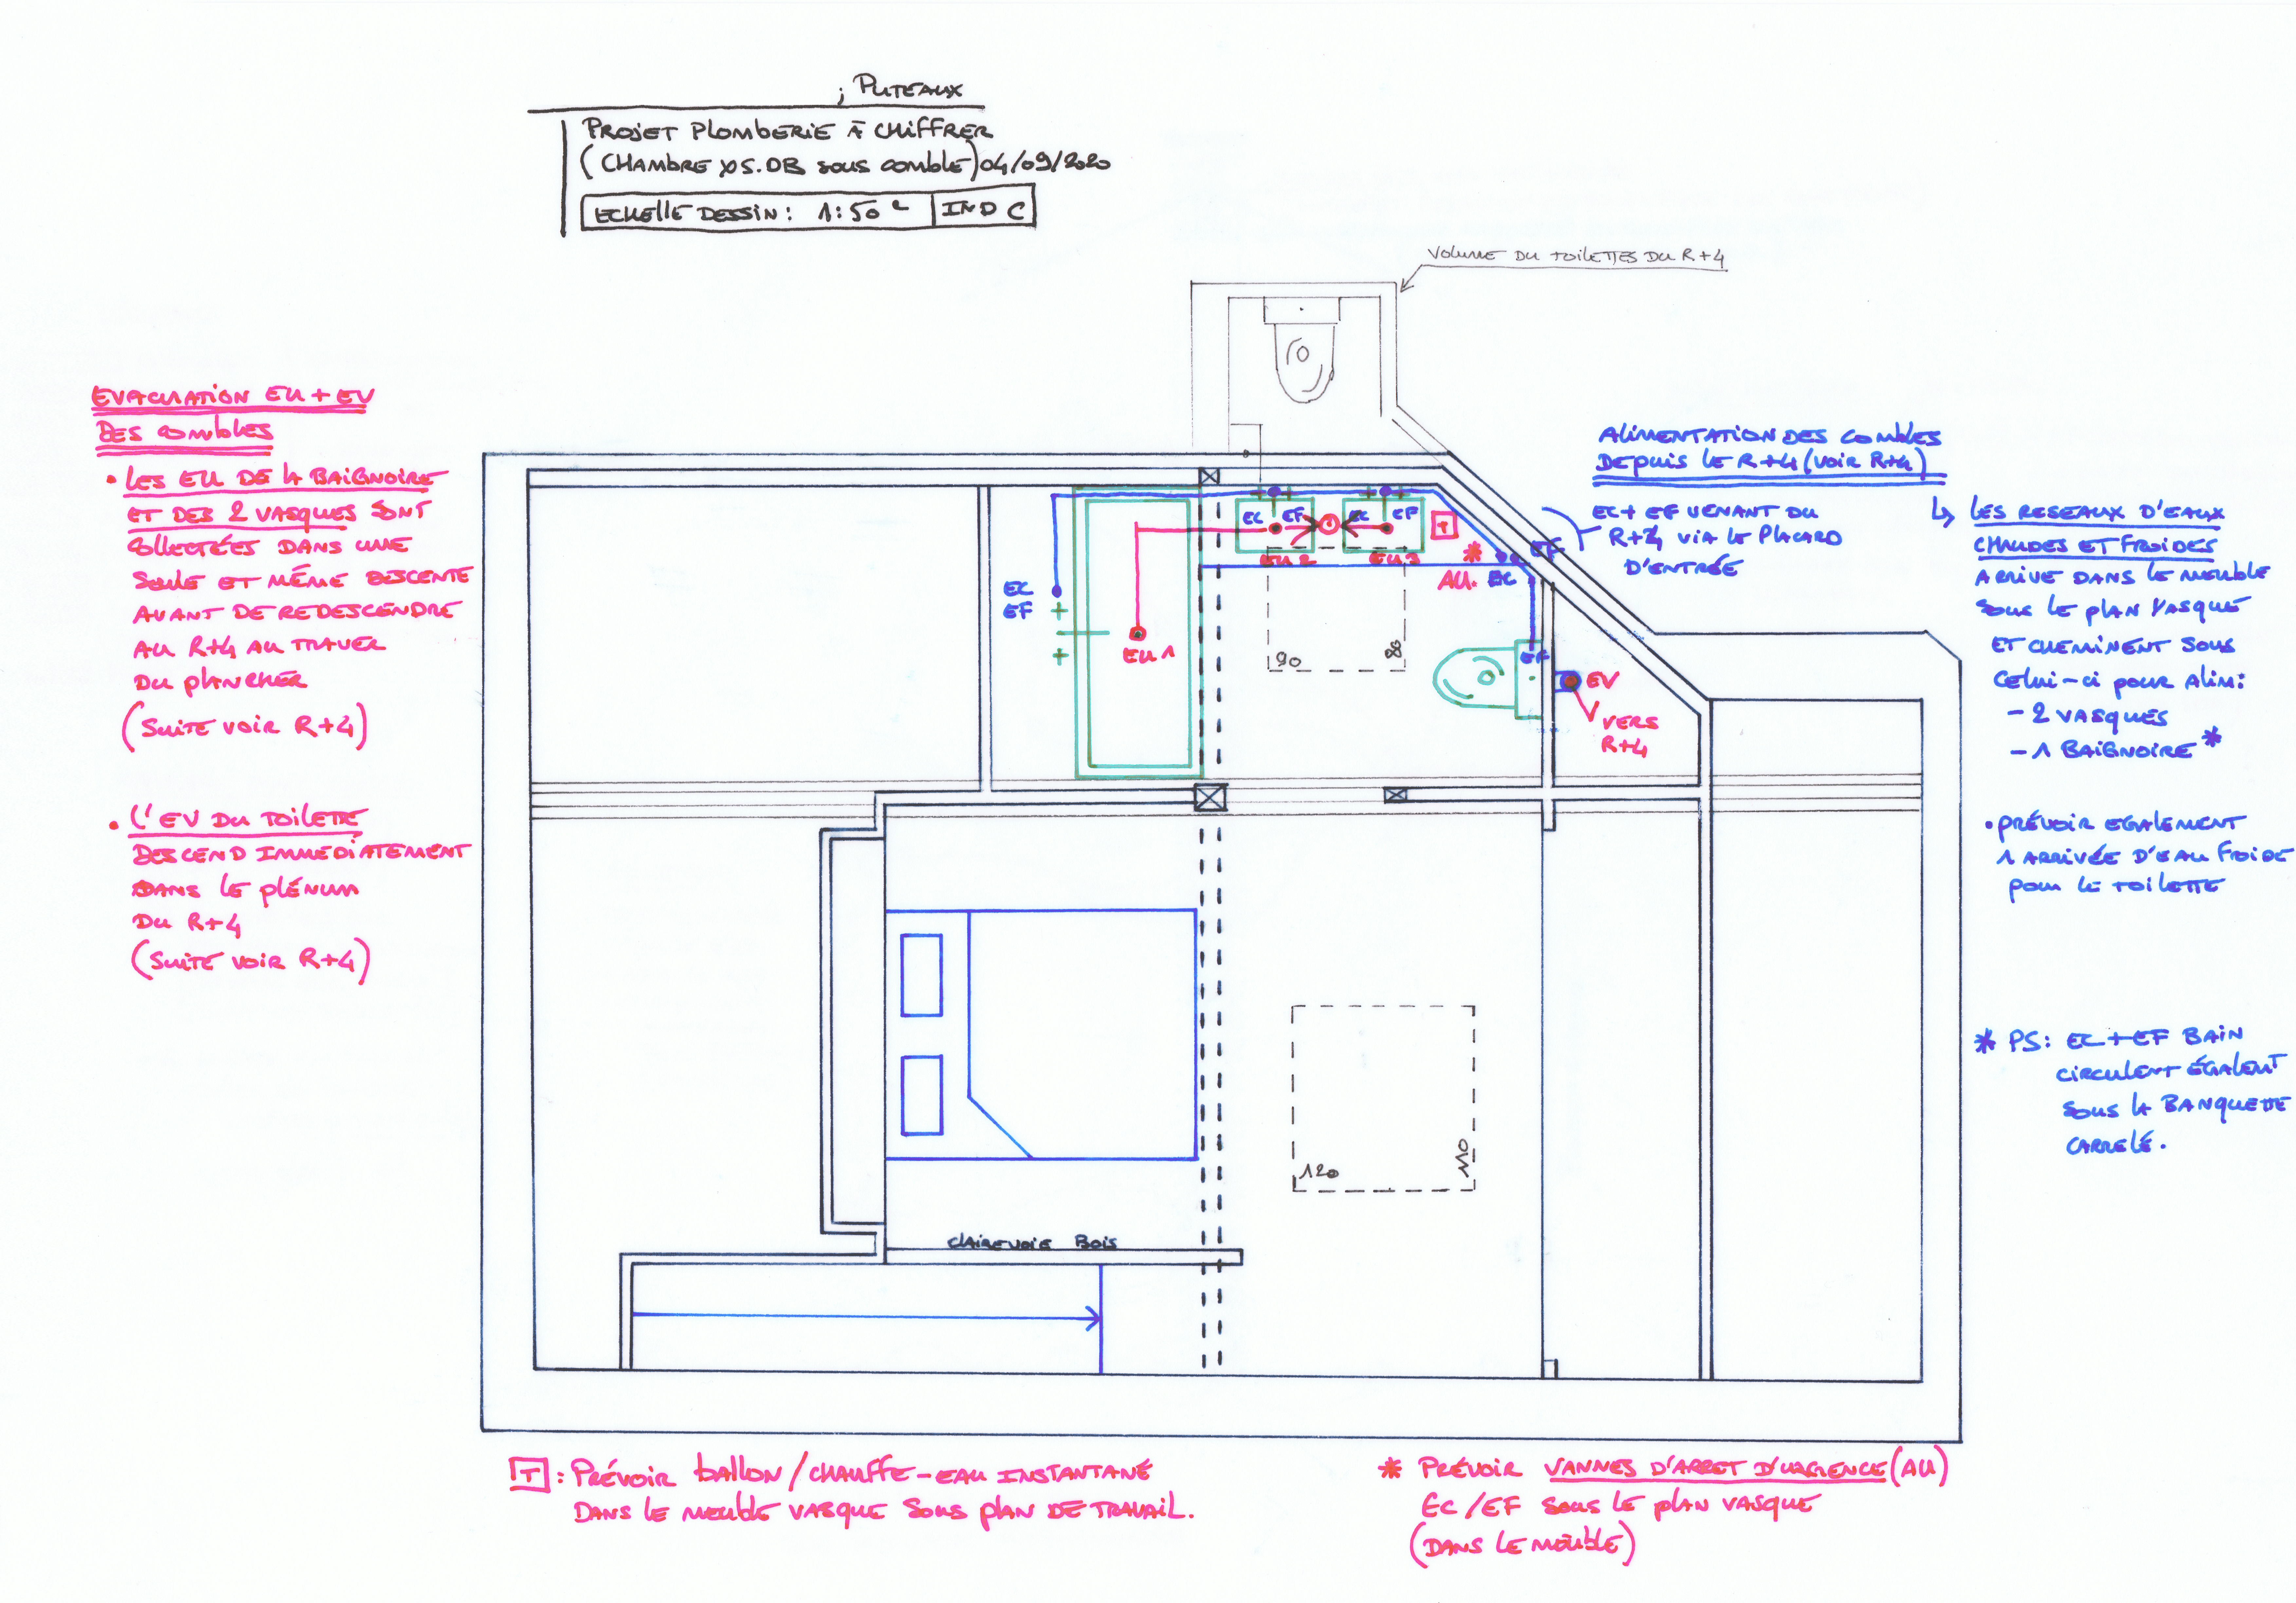 ; PUTEAUX
PROJET PLOMBERIE À CHIFFRER
(CHAMBRE XS.DB SOUS COMBLE) 04/09/2020
ECHELLE DESSIN : 1:50e
IND C
VOLUME DU TOILETTES DU R+4
EVACUATION EU + EV
DES COMBLES
• LES EU DE LA BAIGNOIRE
ET DES 2 VASQUES SONT
COLLECTÉES DANS UNE
SEULE ET MÊME DESCENTE
AVANT DE REDESCENDRE
AU R+4 AU TRAVER
DU PLANCHER
(SUITE VOIR R+4)
• L'EV DU TOILETTE
DESCEND IMMEDIATEMENT
DANS LE PLÉNUM
DU R+4
(SUITE VOIR R+4)
ALIMENTATION DES COMBLES
DEPUIS LE R+4 (VOIR R+4)
EC + EF VENANT DU
R+4 VIA LE PLACARD
D'ENTRÉE
↳ LES RESEAUX D'EAUX
CHAUDES ET FROIDES
ARRIVE DANS LE MEUBLE
SOUS LE PLAN VASQUE
ET CHEMINENT SOUS
CELUI-CI POUR ALIM:
- 2 VASQUES
- 1 BAIGNOIRE *
• PRÉVOIR EGALEMENT
1 ARRIVÉE D'EAU FROIDE
POUR LE TOILETTE
* PS: EC + EF BAIN
CIRCULENT ÉGALEMT
SOUS LA BANQUETTE
CARRELÉ.
EC EF
EC EF
T
EU 2
EU 3
* AU.
EC
EF
EC
EF
EU 1
90
80
EF
EV
VERS
R+4
120
110
CLAIREVOIE BOIS
T : PRÉVOIR BALLON / CHAUFFE-EAU INSTANTANÉ
DANS LE MEUBLE VASQUE SOUS PLAN DE TRAVAIL.
* PRÉVOIR VANNES D'ARRET D'URGENCE (AU)
EC/EF SOUS LE PLAN VASQUE
(DANS LE MEUBLE)